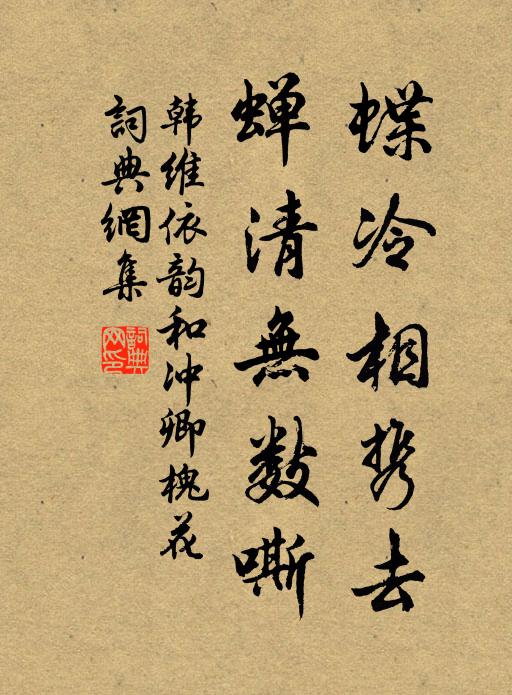 蝶冷相携去
蝉清無数嘶
韩维依韵和冲卿槐花
詞典網集
詞典网印